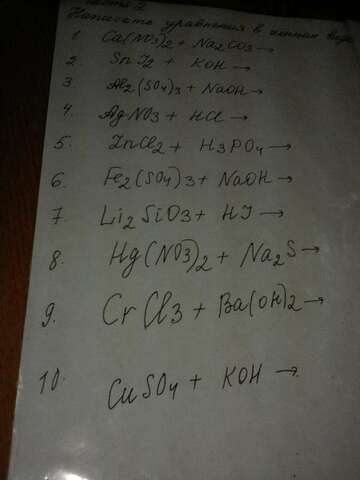 Написать уравнения в ионном виде
1. Ca(NO3)2 + Na2CO3 →
2. SnJ2 + KOH →
3. Al2(SO4)3 + NaOH →
4. AgNO3 + HCl →
5. ZnCl2 + H3PO4 →
6. Fe2(SO4)3 + NaOH →
7. Li2SiO3 + HJ →
8. Hg(NO3)2 + Na2S →
9. CrCl3 + Ba(OH)2 →
10. CuSO4 + KOH →